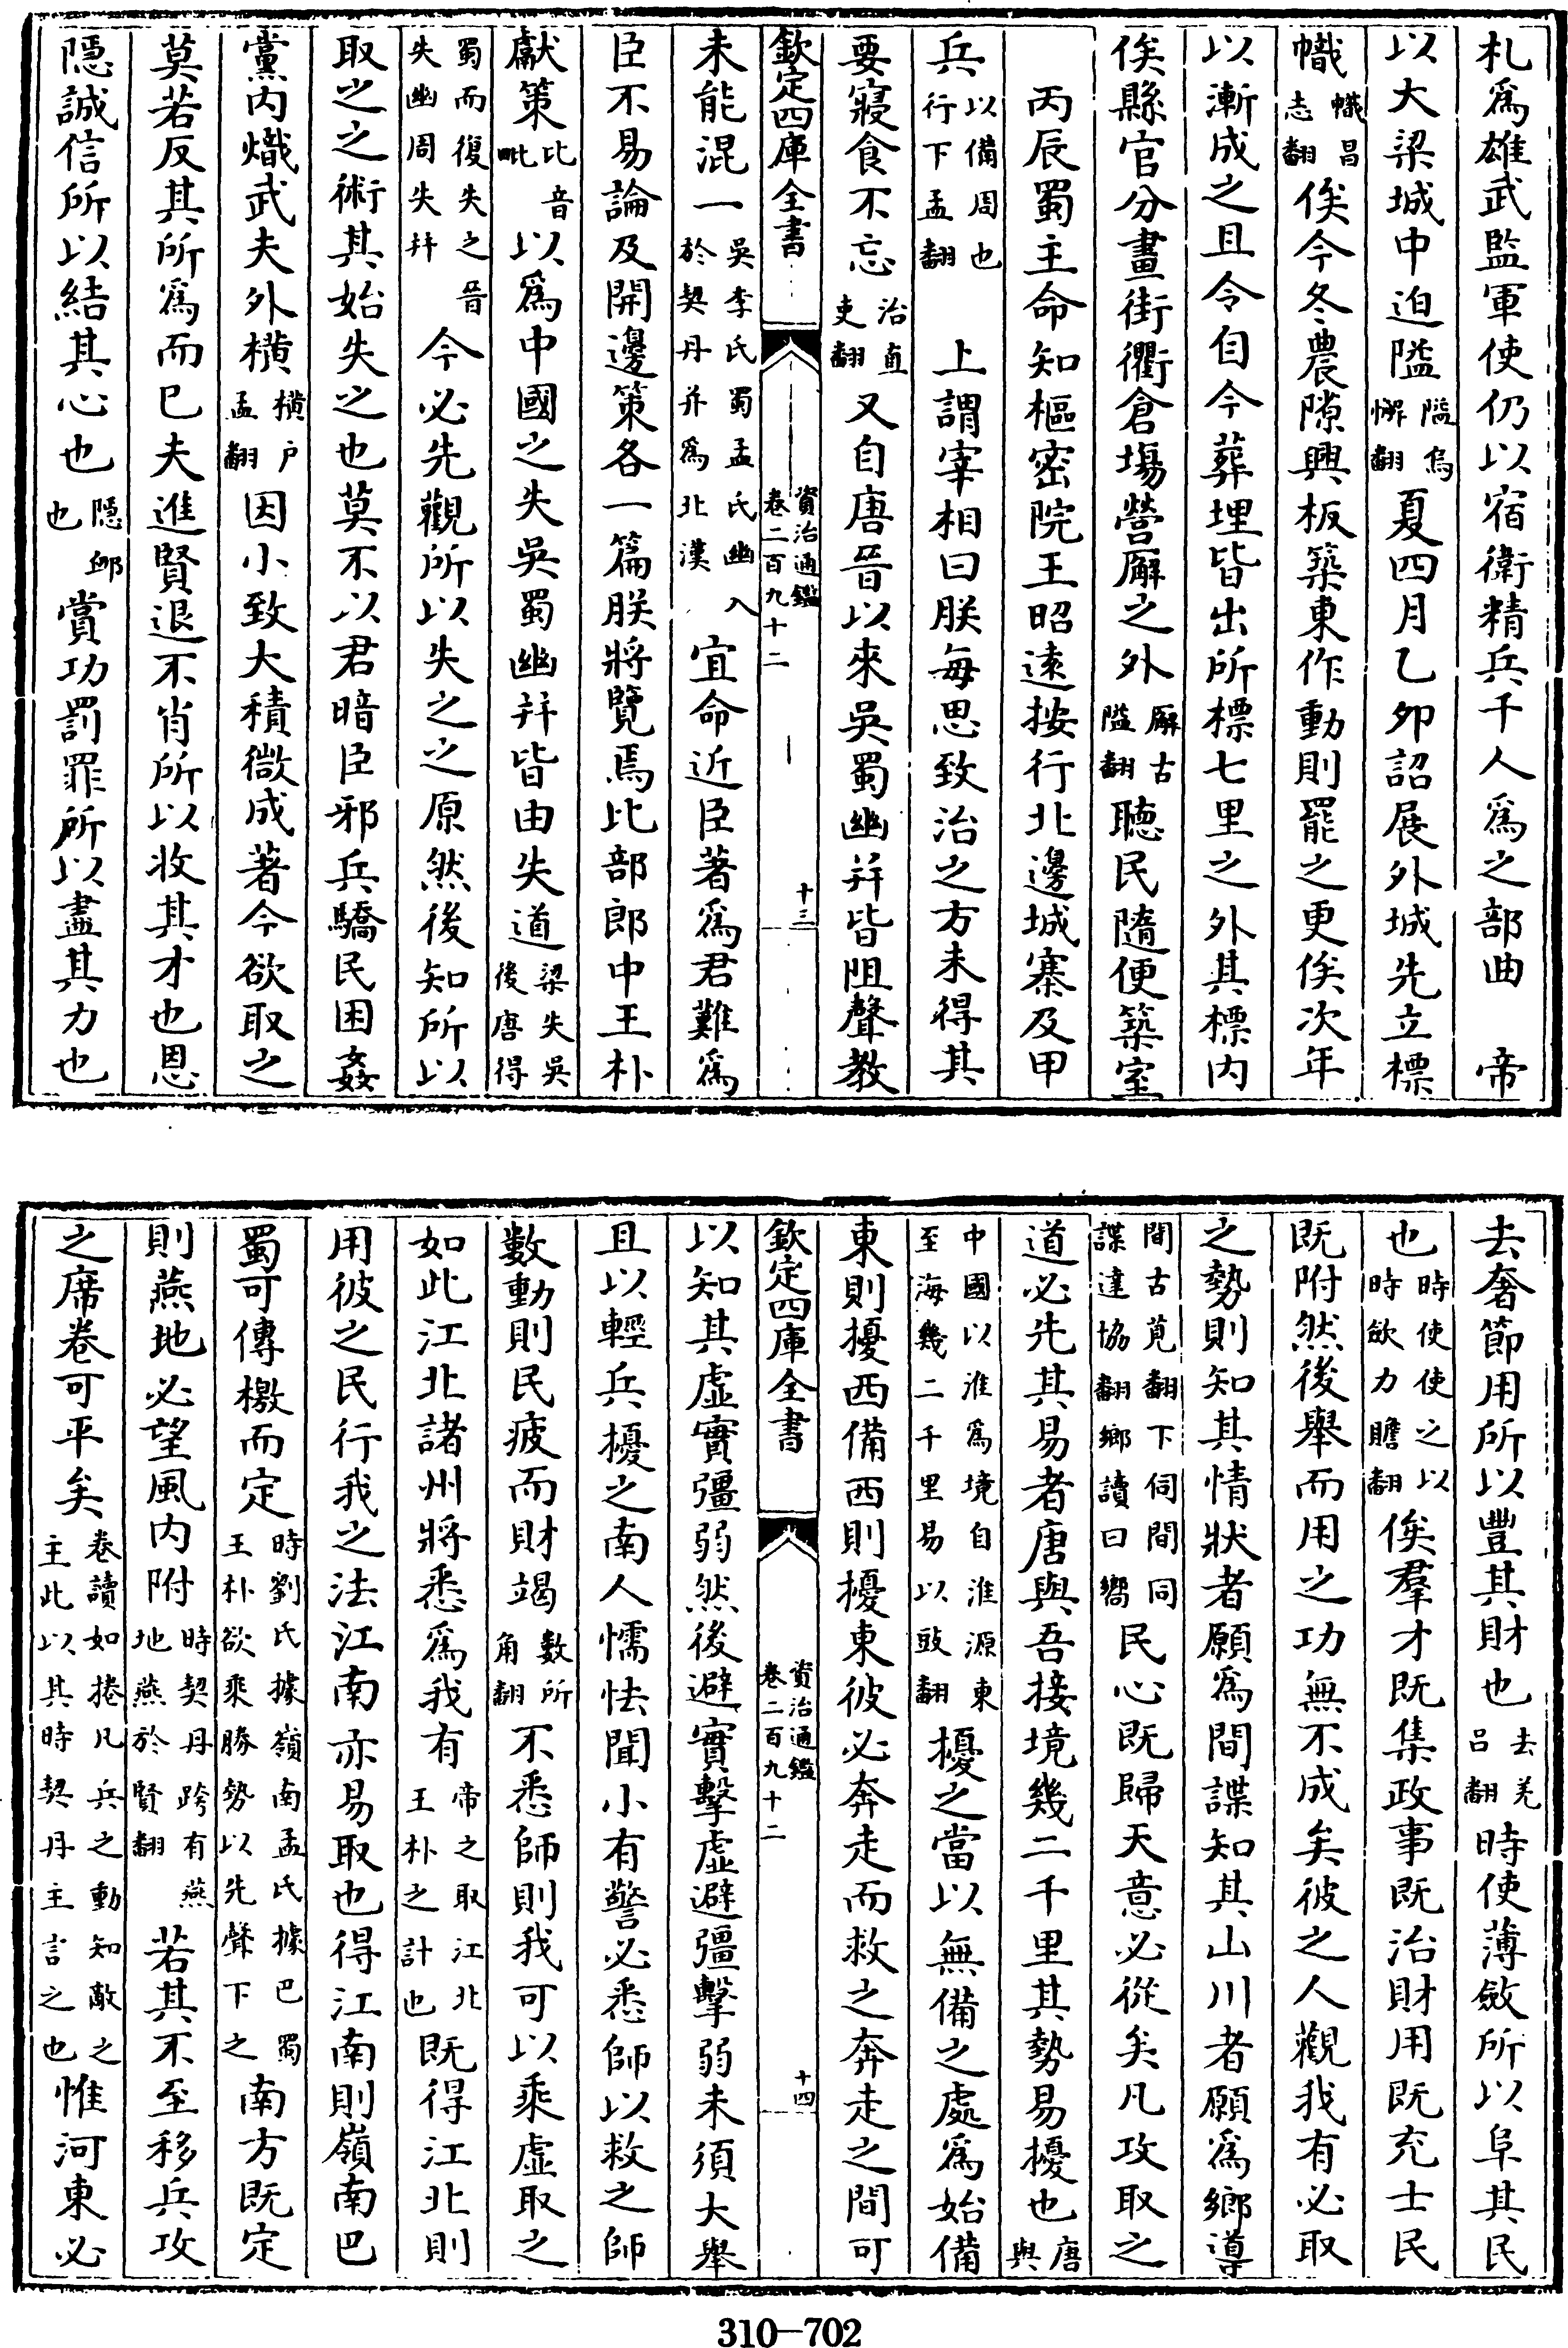 札爲雄武監軍使仍以宿衛精兵千人爲之部曲　帝
以大梁城中迫隘隘烏懈翻夏四月乙夘詔展外城先立標
幟幟昌志翻俟今冬農隙興板築東作動則罷之更俟次年
以漸成之且令自今葬埋皆出所標七里之外其標内
俟縣官分畫街衢倉塲營廨之外廨古隘翻聽民隨便築室
丙辰蜀主命知樞密院王昭逺按行北邊城寨及甲
兵以備周也行下孟翻　上謂宰相曰朕每思致治之方未得其
要寢食不忘治直吏翻又自唐晉以來吳蜀幽并皆阻聲教
欽定四庫全書　資治通鑑卷二百九十二　十三
未能混一吳李氏蜀孟氏幽入於契丹并爲北漢宜命近臣著爲君難爲
臣不易論及開邊策各一篇朕將覽焉比部郎中王朴
獻策比音毗音以爲中國之失吳蜀幽并皆由失道梁失吳後唐得
蜀而復失之晉失幽周失并今必先觀所以失之之原然後知所以
取之之術其始失之也莫不以君暗臣邪兵驕民困姦
黨内熾武夫外橫橫户孟翻因小致大積微成著今欲取之
莫若反其所爲而已夫進賢退不肖所以收其才也恩
隱誠信所以結其心也隱卹也賞功罰罪所以盡其力也
去奢節用所以豐其財也去羌吕翻時使薄斂所以阜其民
也時使使之以時斂力贍翻俟羣才既集政事既治財用既充士民
既附然後舉而用之功無不成矣彼之人觀我有必取
之勢則知其情狀者願爲間諜知其山川者願爲鄉導
間古莧翻下伺間同諜達協翻鄉讀曰嚮民心既歸天意必從矣凡攻取之
道必先其易者唐與吾接境幾二千里其勢易擾也唐與
中國以淮爲境自淮源東至海幾二千里易以豉翻擾之當以無備之處爲始備
東則擾西備西則擾東彼必奔走而救之奔走之間可
欽定四庫全書　資治通鑑卷二百九十二　十四
以知其虛實彊弱然後避實擊虛避彊擊弱未須大舉
且以輕兵擾之南人懦怯聞小有警必悉師以救之師
數動則民疲而財竭數所角翻不悉師則我可以乘虛取之
如此江北諸州將悉爲我有帝之取江北王朴之計也既得江北則
用彼之民行我之法江南亦易取也得江南則嶺南巴
蜀可傳檄而定時劉氏據嶺南孟氏據巴蜀王朴欲乘勝勢以先聲下之南方既定
則燕地必望風内附時契丹跨有燕地燕於賢翻若其不至移兵攻
之席卷可平矣卷讀如捲凡兵之動知敵之主此以其時契丹主言之也惟河東必
310—702